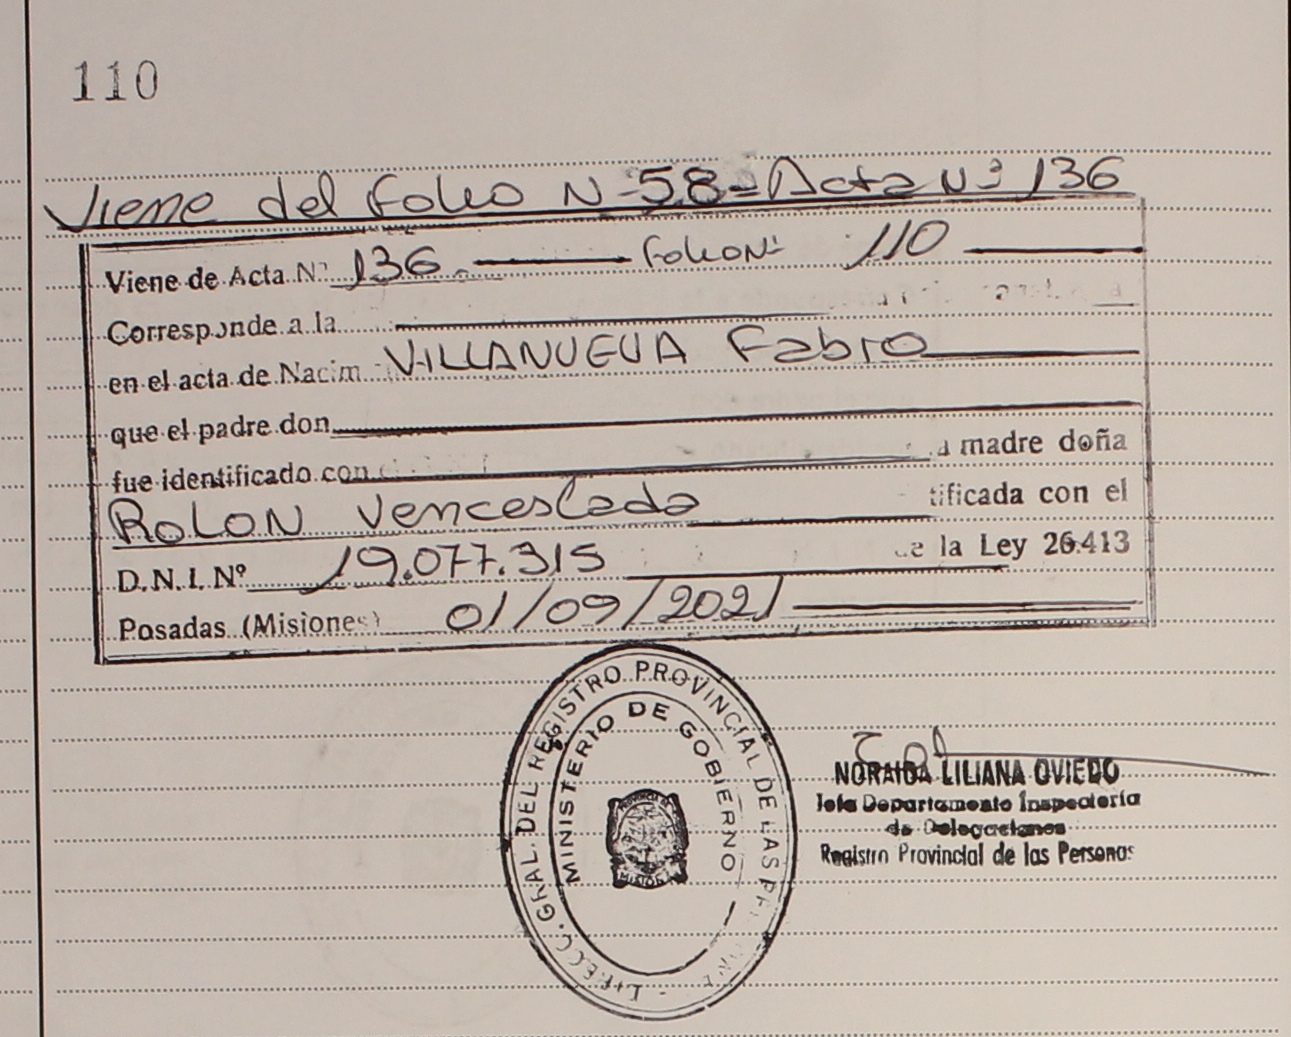 110
Viene del Folio N-58=Acta Nº 136
Viene de Acta Nº 136. Folio Nº 110
Corresponde a la
en el acta de Nacim VILLANUEVA Fabio
que el padre don
fue identificado con madre doña
ROLON Venceslada tificada con el
D.N.I. Nº 19.077.315 de la Ley 26.413
Posadas (Misiones) 01/09/2021
GRAL. DEL REGISTRO PROVINCIAL DE LAS
MINISTERIO DE GOBIERNO
NORAIDA LILIANA OVIEDO
Jefa Departamento Inspectoría
de Delegaciones
Registro Provincial de las Personas